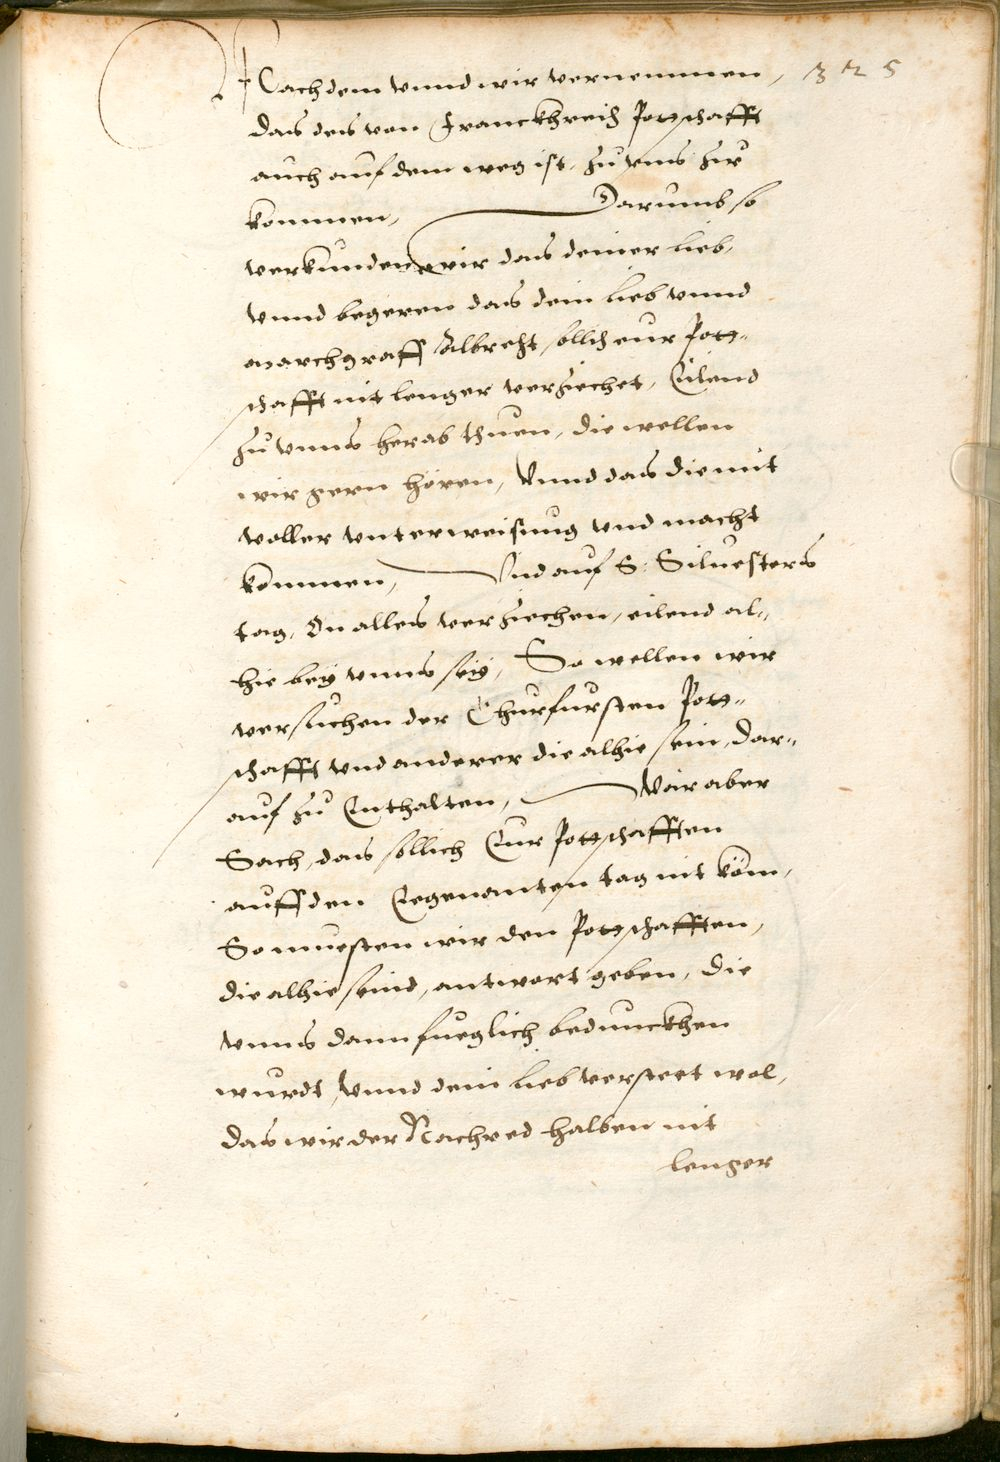 325
Nachdem vnnd wir vernemmen,
das des von Franckhreich Pottschafft
auch auf dem weg ist, zu vns zur
kommen, Darumb so
verkunden wir das deiner lieb,
vnnd begeren das dein lieb vnnd
marchgraff Albrecht, sollch eur Pott-
schafft nit lenger verziechet, Eilend
zu vnns herab thuen, die wellen
wir gern hören, Vnnd das die mit
voller vnterweisung vnd macht
kommen, Vnd auf S: Siluesters
tag, On alles verziechen, eilend al-
hie bey vnns sey, So wellen wir
versuchen der Churfursten Pott-
schafft vnd anderer die alhie sein, dar-
auf zu Enthalten, War aber
Sach, das sollich Eur Pottschafften
auff den Egenanten tag nit köm,
So muesten wir den Pottschafften,
die alhie seind, antwort geben, die
vnns dann fueglich bedunckhen
wurdt, Vnnd dein lieb versteet wol,
das wir der Nachred halben nit
lenger